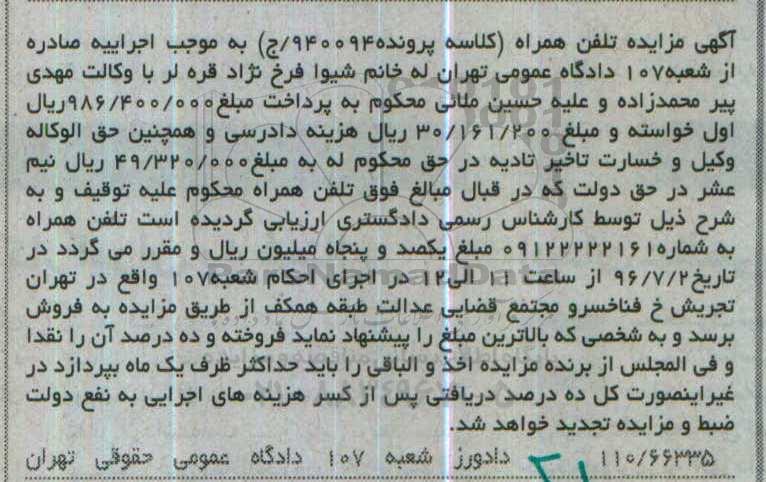 آگهی مزایده تلفن همراه (کلاسه پرونده۹۴۰۰۹۴/ج) به موجب اجراییه صادره
از شعبه۱۰۷ دادگاه عمومی تهران له خانم شیوا فرخ نژاد قره لر با وکالت مهدی
پیر محمدزاده و علیه حسین ملائی محکوم به پرداخت مبلغ۹۸۶/۴۰۰/۰۰۰ریال
اول خواسته و مبلغ ۳۰/۱۶۱/۲۰۰ ریال هزینه دادرسی و همچنین حق الوکاله
وکیل و خسارت تاخیر تادیه در حق محکوم له به مبلغ۴۹/۳۲۰/۰۰۰ ریال نیم
عشر در حق دولت که در قبال مبالغ فوق تلفن همراه محکوم علیه توقیف و به
شرح ذیل توسط کارشناس رسمی دادگستری ارزیابی گردیده است تلفن همراه
به شماره۰۹۱۲۲۲۲۲۱۶۱ مبلغ یکصد و پنجاه میلیون ریال و مقرر می گردد در
تاریخ۹۶/۷/۲ از ساعت ۱۱ الی۱۲ در اجرای احکام شعبه۱۰۷ واقع در تهران
تجریش خ فناخسرو مجتمع قضایی عدالت طبقه همکف از طریق مزایده به فروش
برسد و به شخصی که بالاترین مبلغ را پیشنهاد نماید فروخته و ده درصد آن را نقدا
و فی المجلس از برنده مزایده اخذ و الباقی را باید حداکثر ظرف یک ماه بپردازد در
غیراینصورت کل ده درصد دریافتی پس از کسر هزینه های اجرایی به نفع دولت
ضبط و مزایده تجدید خواهد شد.
۱۱۰/۶۶۳۳۵ دادورز شعبه ۱۰۷ دادگاه عمومی حقوقی تهران